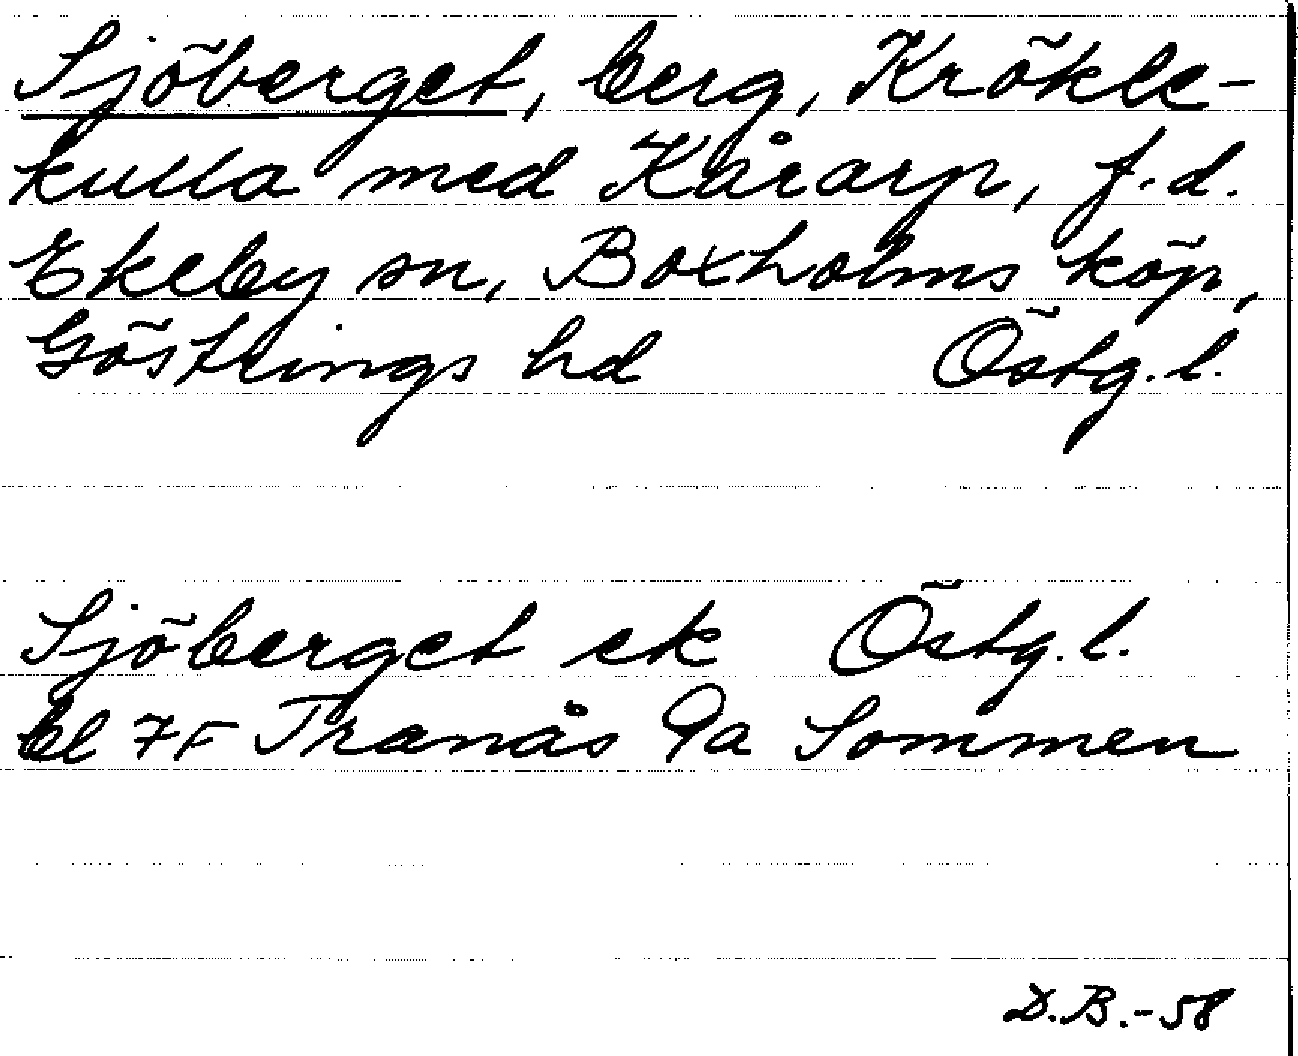 Sjöberget, berg, Krökle-
kulla med Kårarp, f.d.
Ekeby sn, Boxholms köp,
Göstrings hd Östg.l.
Sjöberget ek Östg.l.
bl 7F Tranås 9a Sommen
D.B.-58